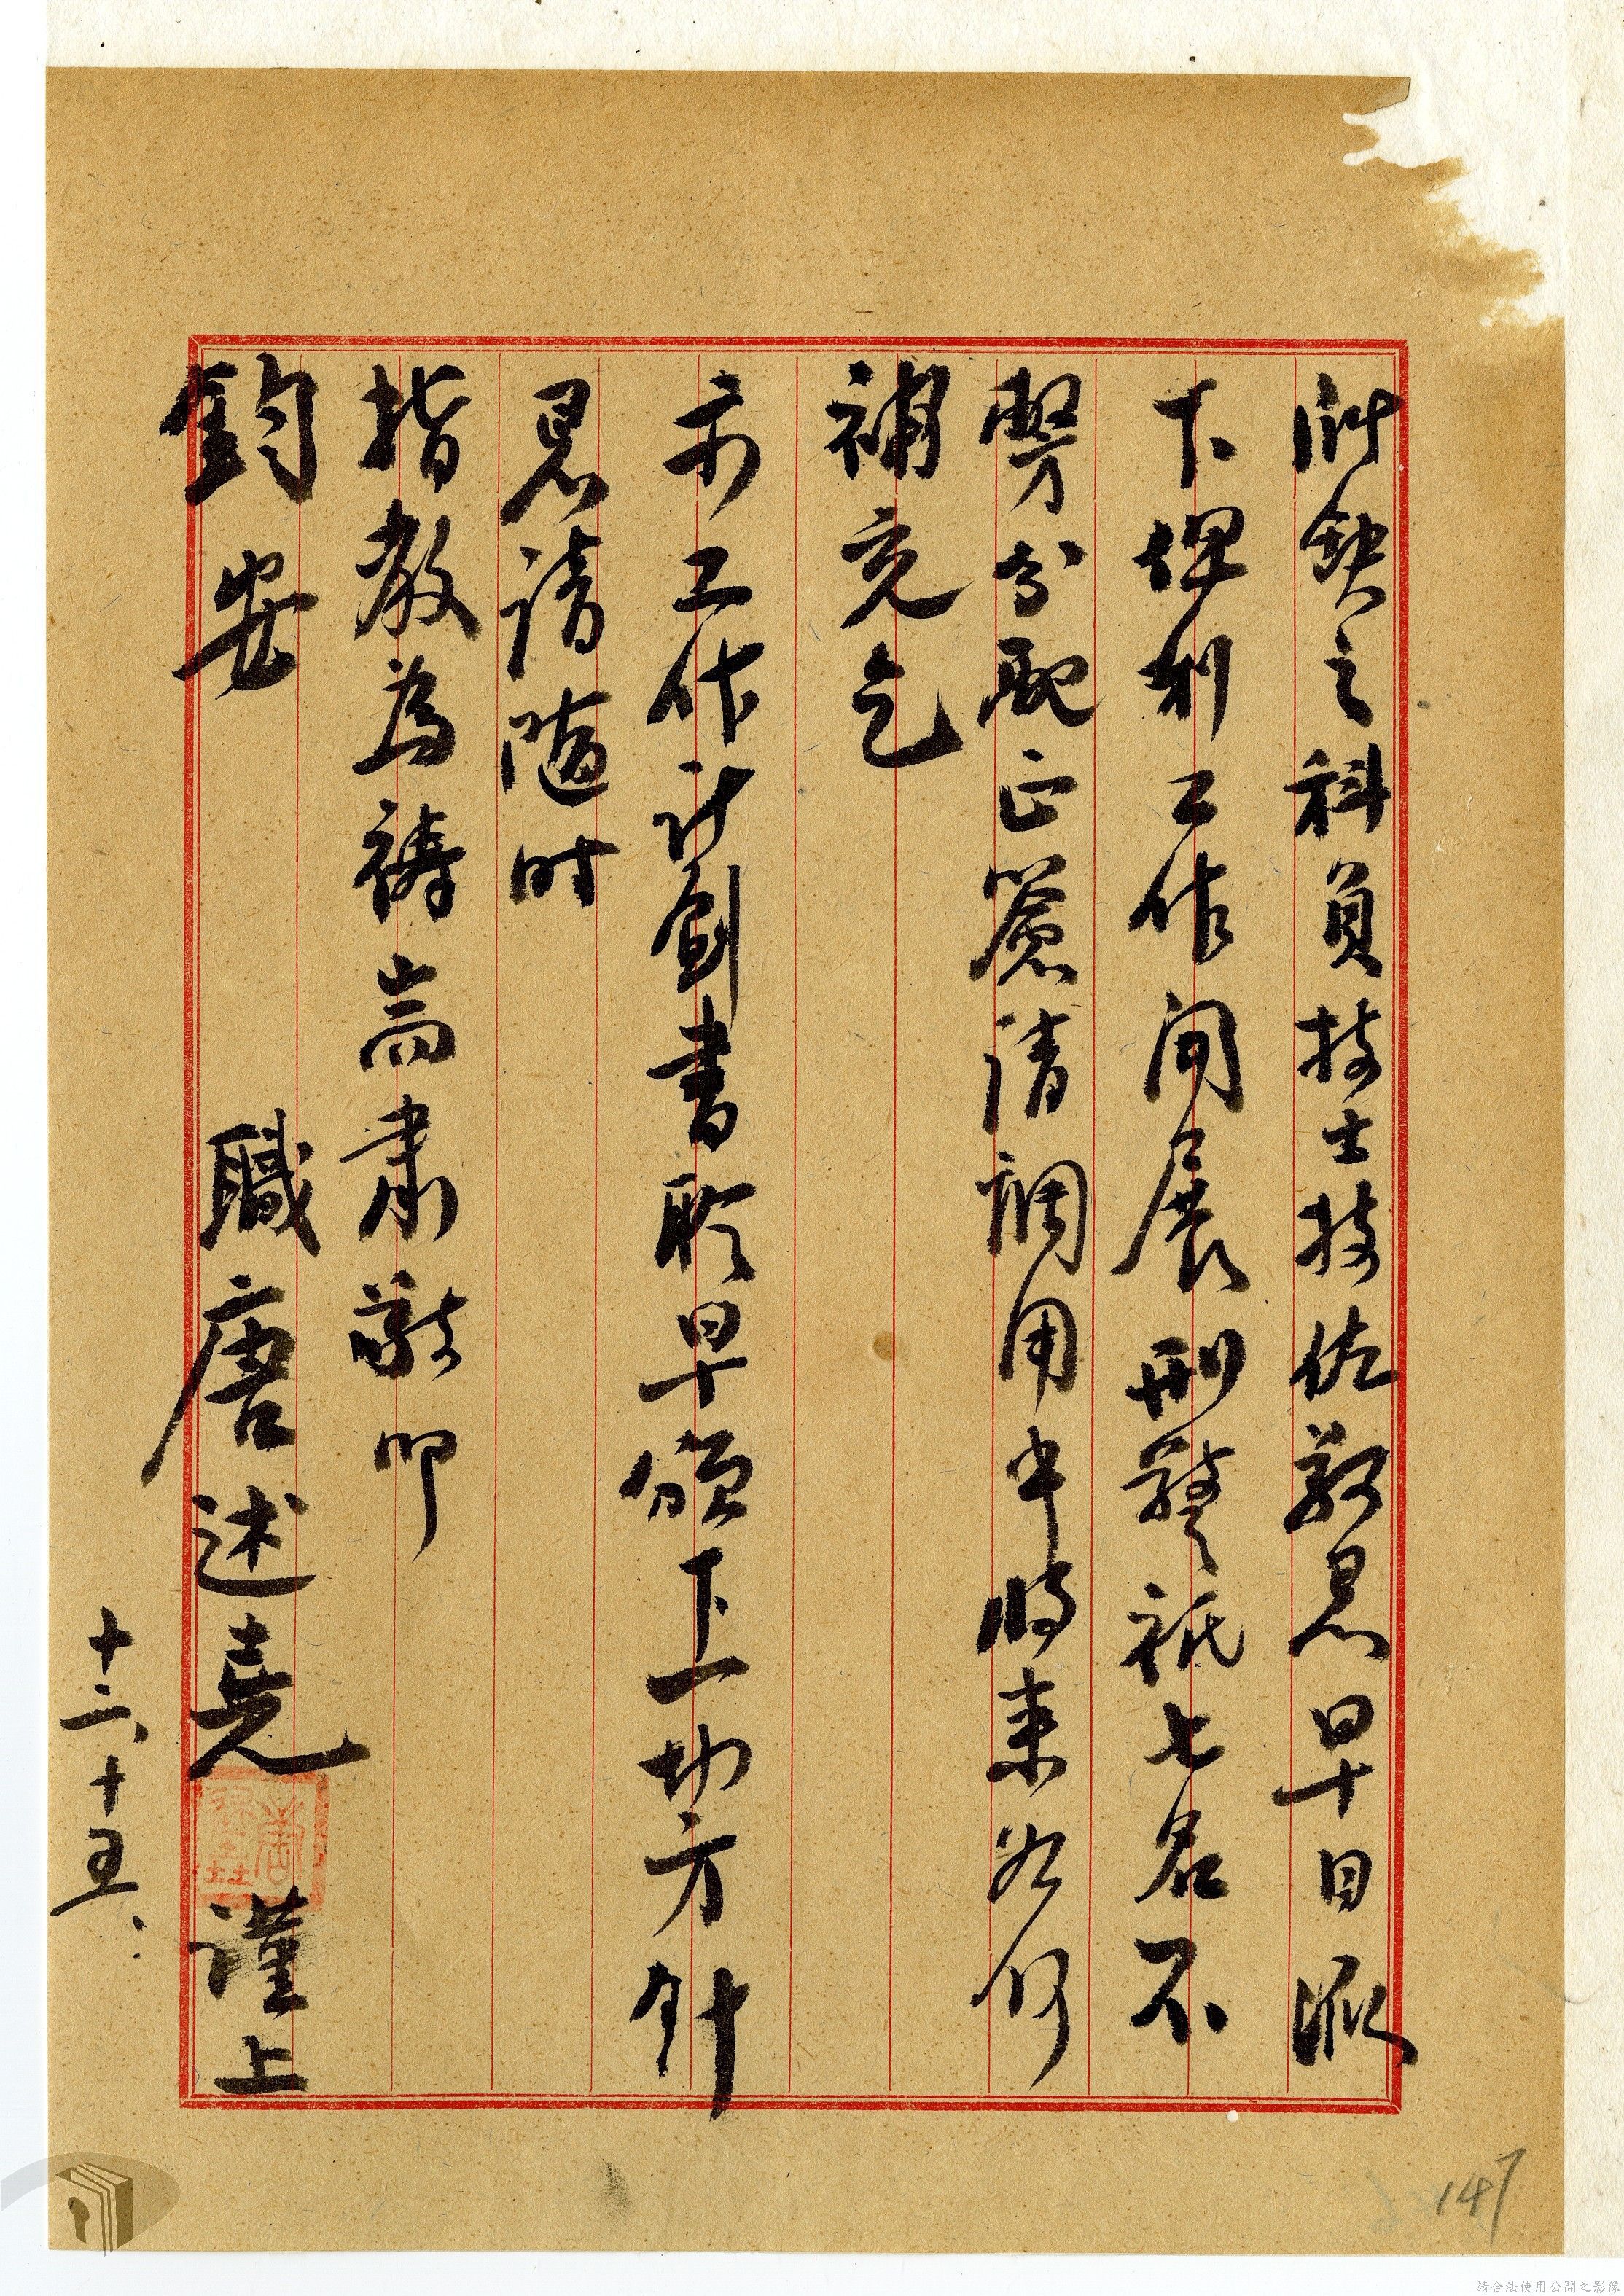 所缺之科員技士技佐敬懇早日派
下俾利工作開展刑警祇七名不
彀分配正簽請調用中將來如何
補充乞
示工作計劃書聆早頒下上切方針
懇請隨時
指教為禱耑肅敬叩
鈞安
職唐述堯謹上
十二、十五、
147
請合法使用公開之影像